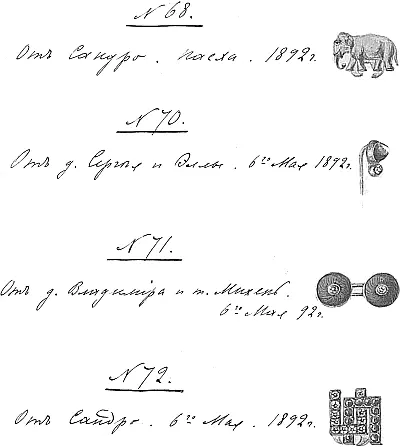 N 68.
Отъ Сандро. Пасха. 1892 г.
N 70.
Отъ д. Сергѣя и Эллы. 6го Мая 1892 г.
N 71.
Отъ д. Владиміра и т. Михень.
6го Мая 92 г.
N 72.
Отъ Сандро. 6го Мая. 1892 г.